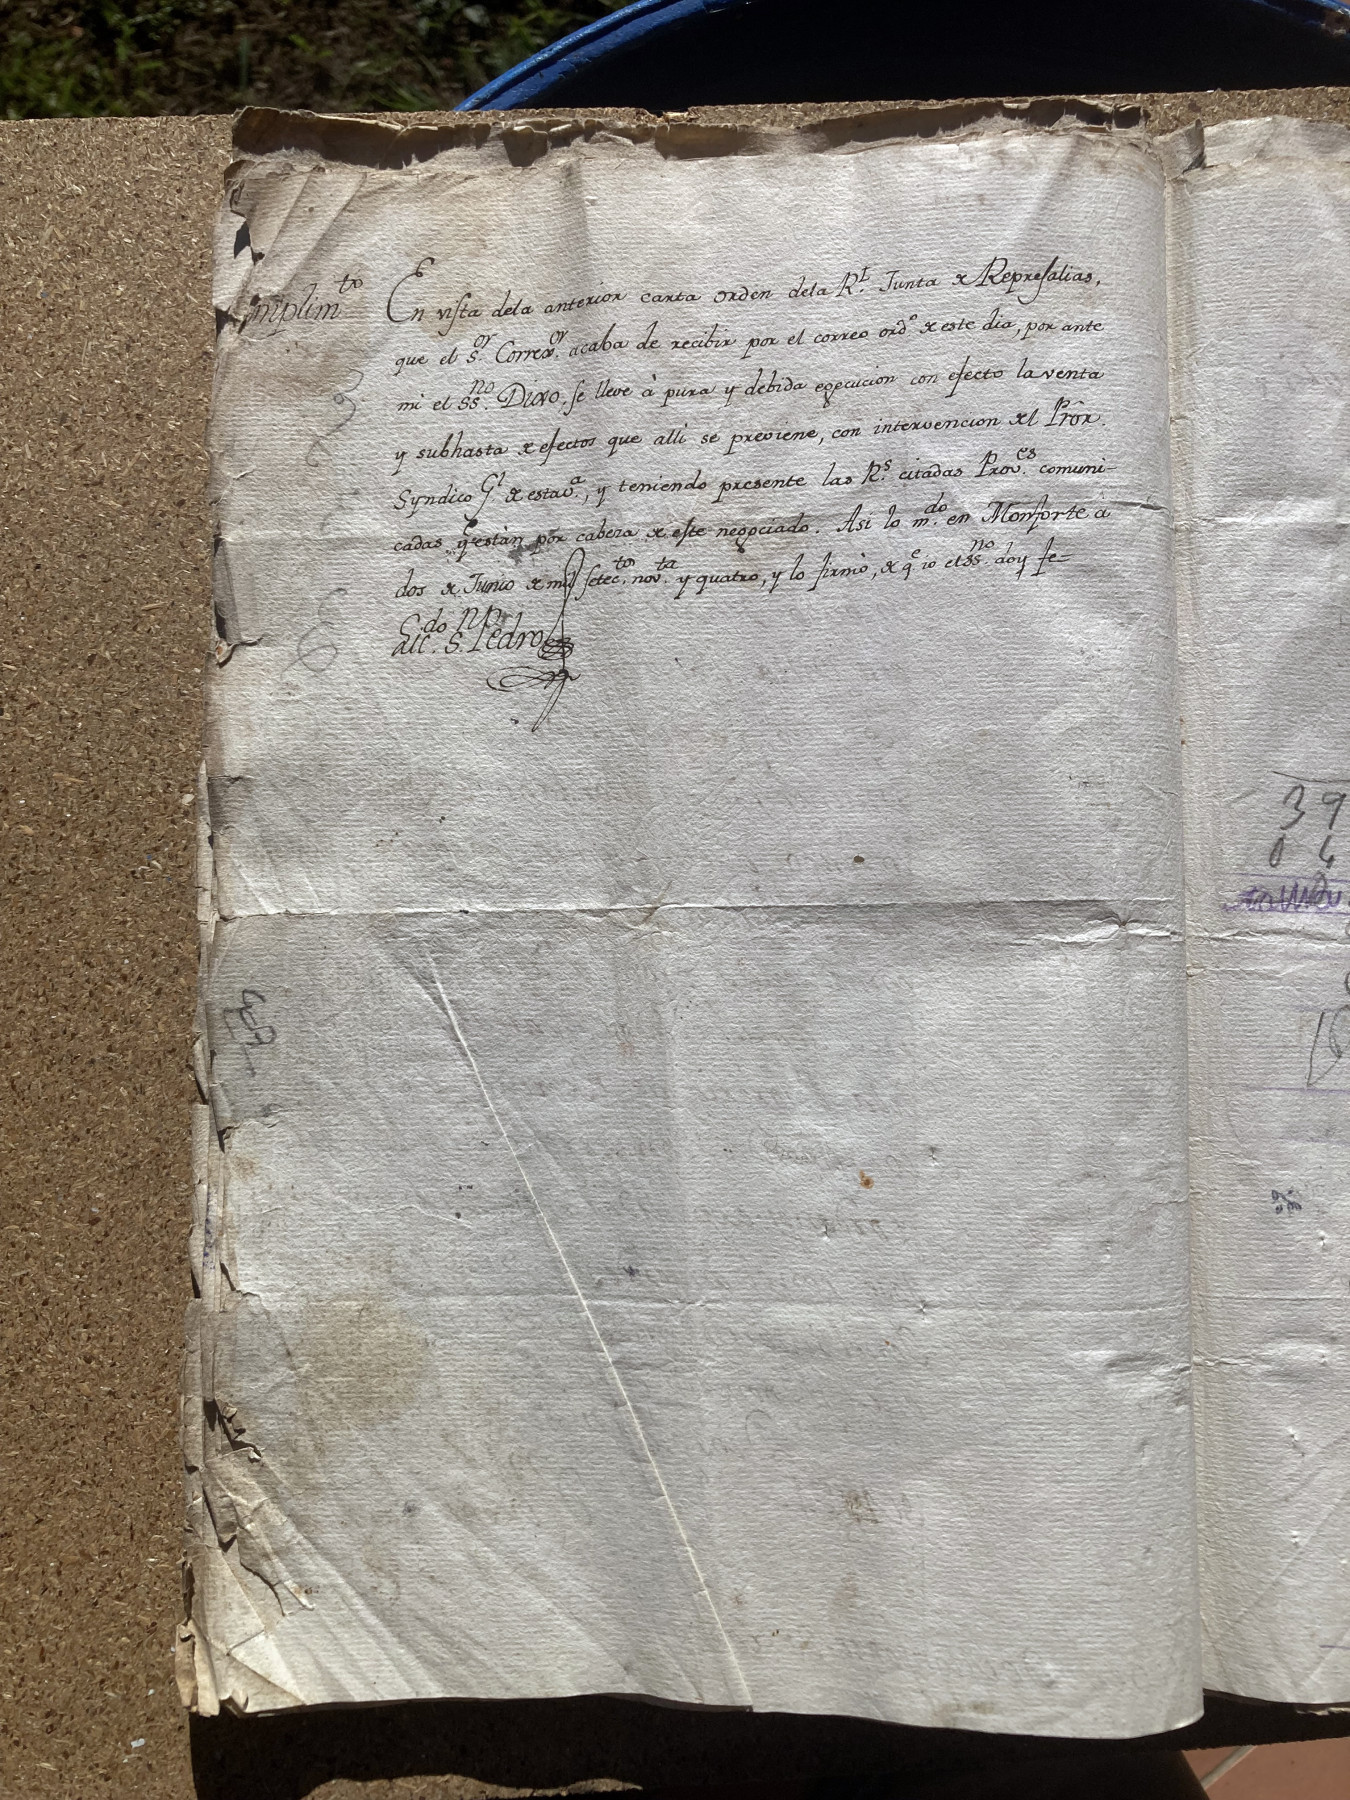 mplim.to En vista dela anterior carta orden dela R.l Junta de Represalias,
que el S.or Correx.or acaba de recibir por el correo ord.o de este dia, por ante
mi el SS.no Dixo, se lleve à pura y debida egecucion con efecto la venta
y subhasta de efectos que alli se previene, con intervencion del Prôr.
Syndico G.l de esta v.a, y teniendo presente las R.s citadas Prov.es comuni-
cadas q.e están por cabeza de este negociado. Asi lo m.do en Monforte à
dos de Junio de mil setec.tos nov.ta y quatro, y lo firmò, de q.e io el SS.no doy fe=
S. Pedro
39